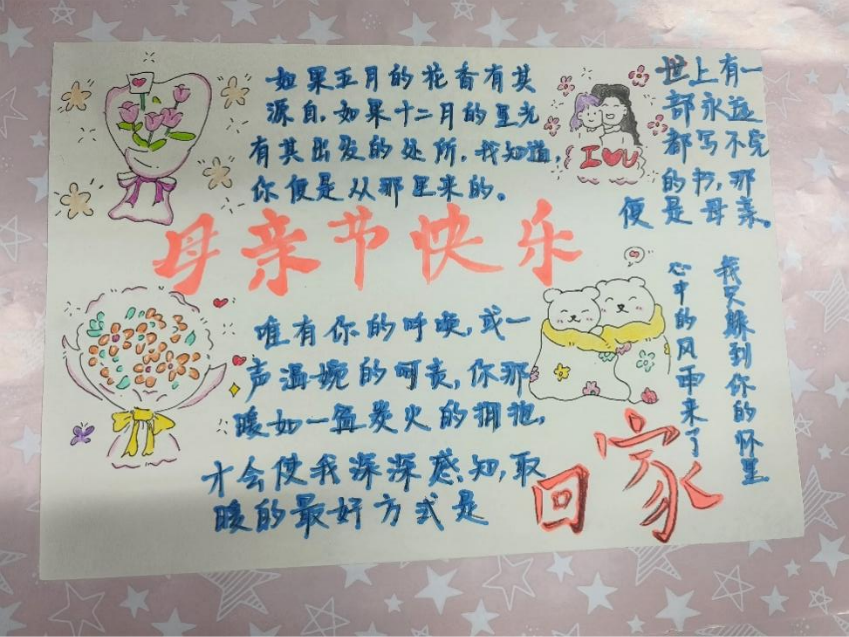 如果五月的花香有其
源自，如果十二月的星光
有其出发的处所，我知道，
你便是从那里来的。
I U
世上有一
部永远
都写不完
的书，那
便是母亲。
母亲节快乐
唯有你的呼唤，或一
声温婉的呵责，你那
暖如一盆炭火的拥抱，
才会使我深深感知，取
暖的最好方式是
回家
心中的风雨来了
我只躲到你的怀里